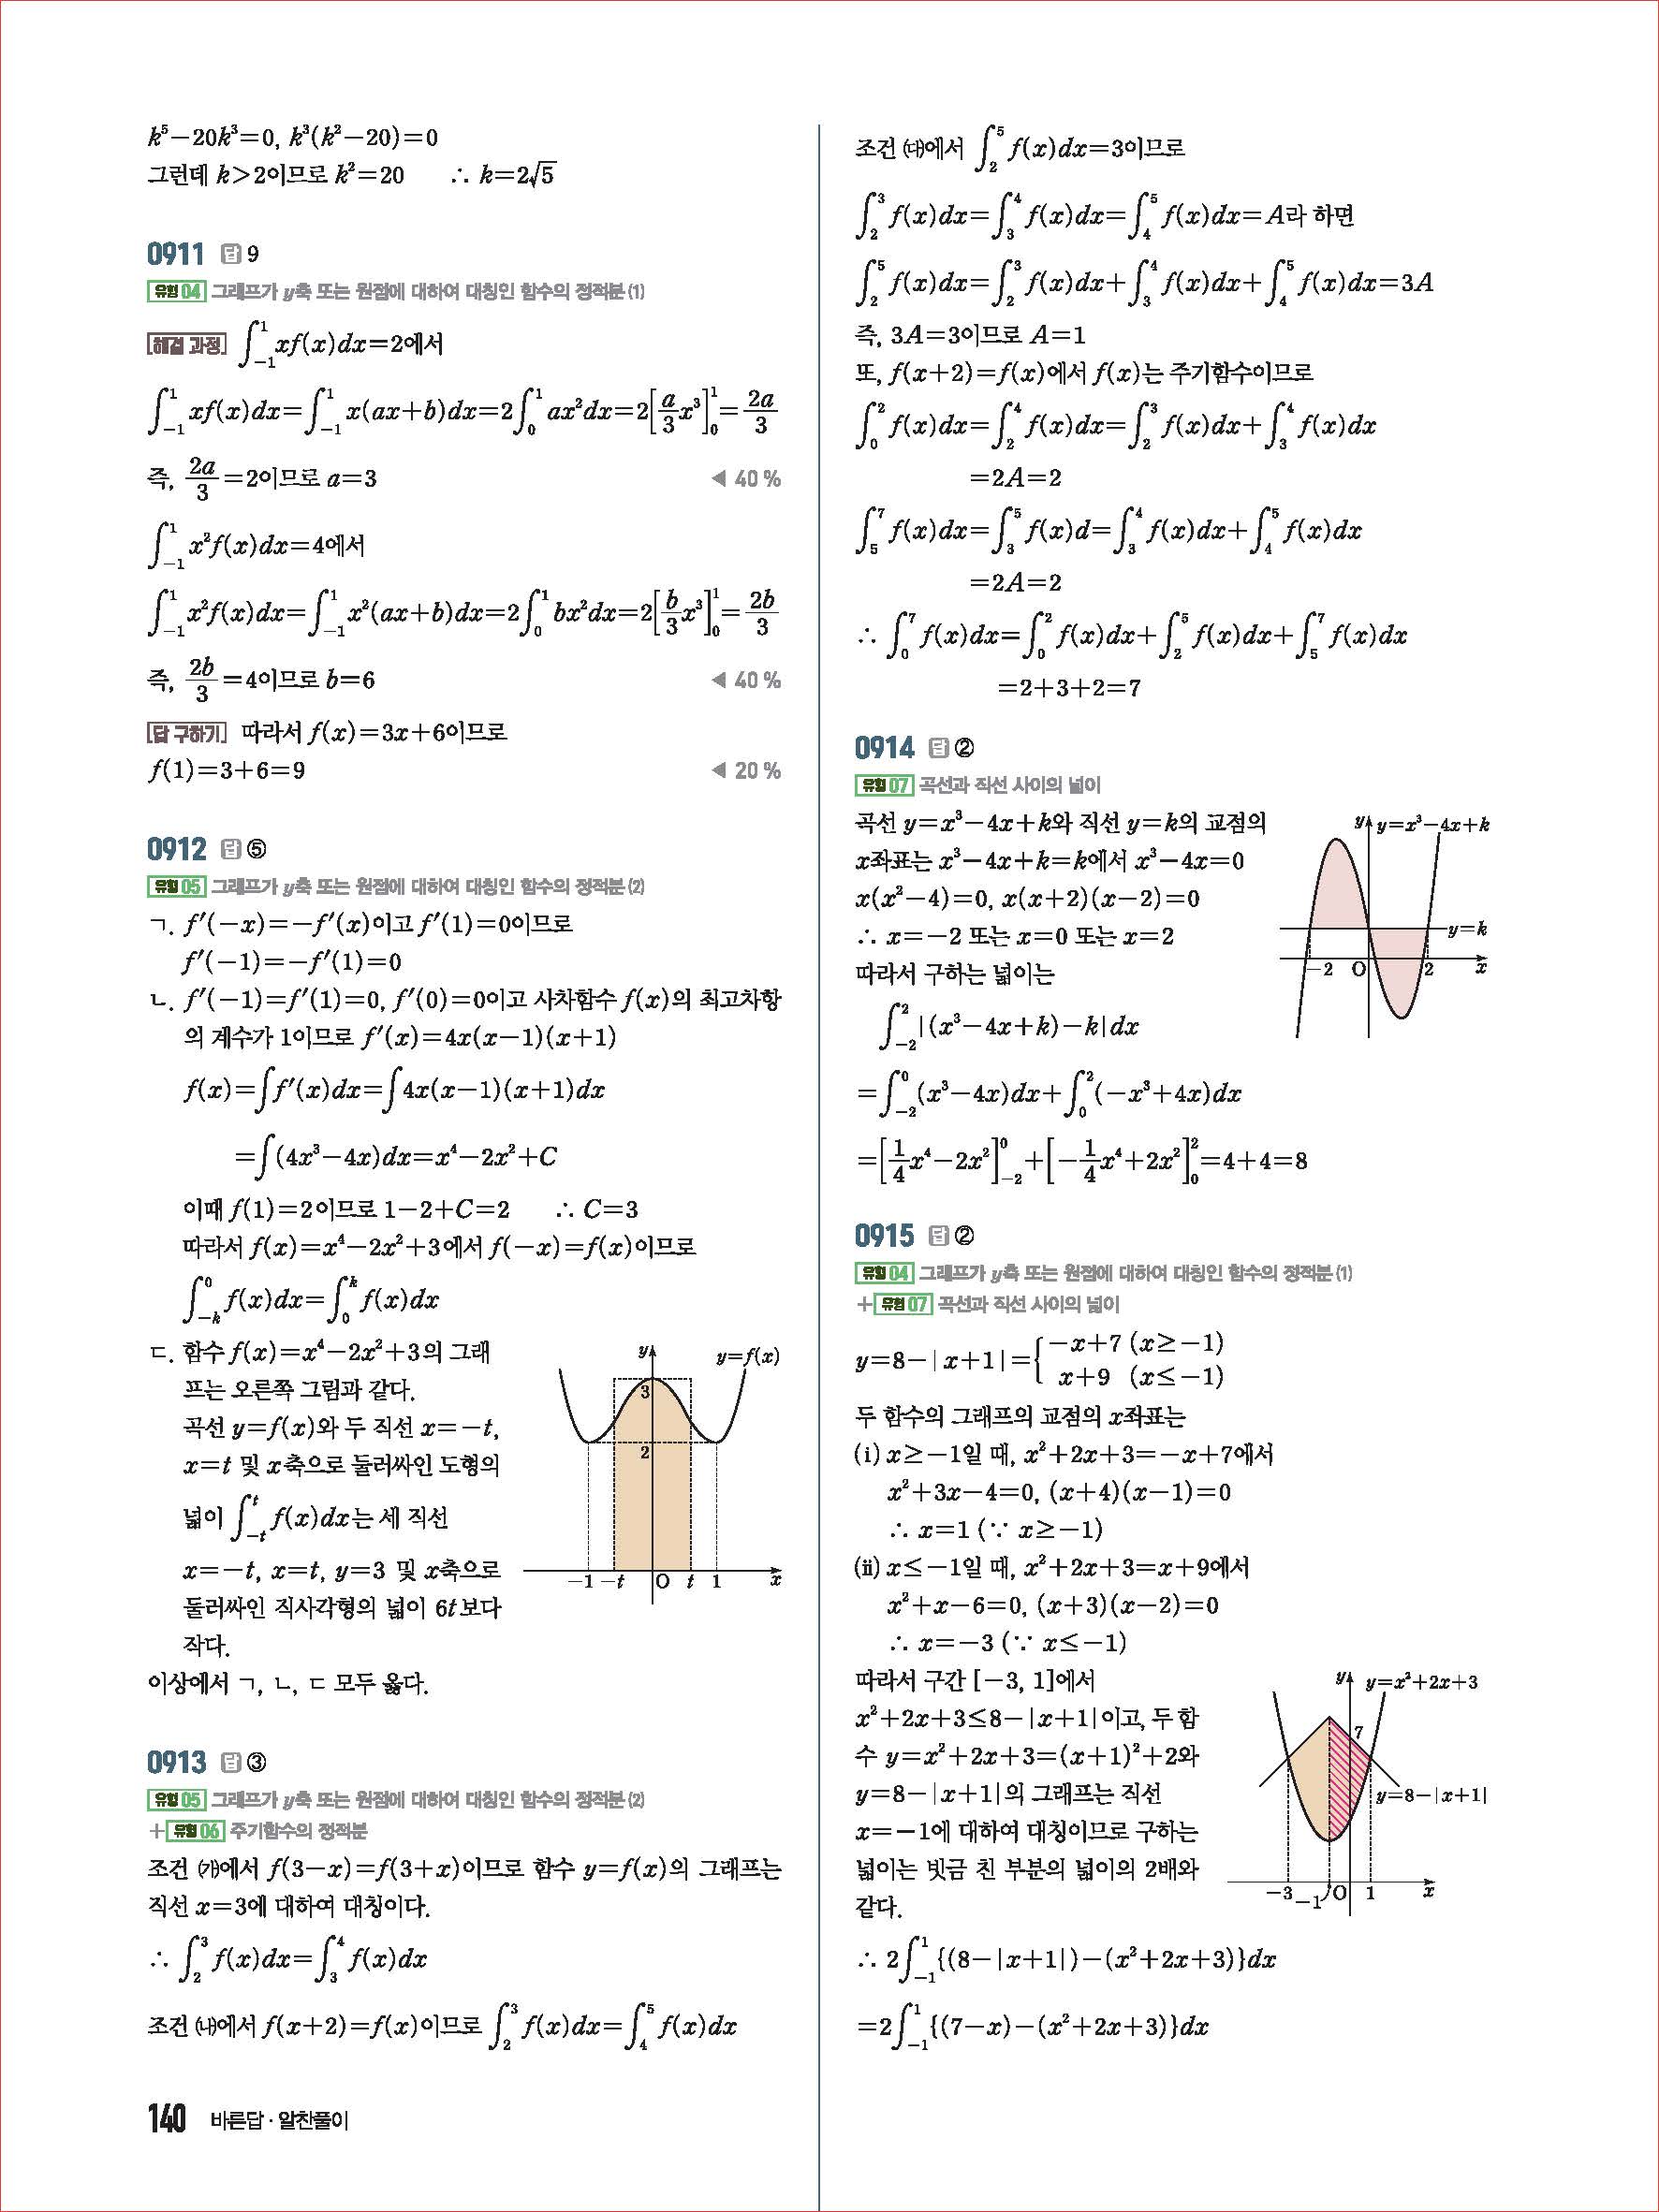 k⁵−20k³=0, k³(k²−20)=0
그런데 k>2이므로 k²=20 ∴ k=2√5
0911 답 9
유형 04 그래프가 y축 또는 원점에 대하여 대칭인 함수의 정적분 (1)
해결 과정 ∫₋₁¹ xf(x)dx=2에서
∫₋₁¹ xf(x)dx=∫₋₁¹ x(ax+b)dx=2∫₀¹ ax²dx=2[a/3 x³]₀¹=2a/3
즉, 2a/3=2이므로 a=3 ◀ 40 %
∫₋₁¹ x²f(x)dx=4에서
∫₋₁¹ x²f(x)dx=∫₋₁¹ x²(ax+b)dx=2∫₀¹ bx²dx=2[b/3 x³]₀¹=2b/3
즉, 2b/3=4이므로 b=6 ◀ 40 %
답 구하기 따라서 f(x)=3x+6이므로
f(1)=3+6=9 ◀ 20 %
0912 답 ⑤
유형 05 그래프가 y축 또는 원점에 대하여 대칭인 함수의 정적분 (2)
ㄱ. f′(−x)=−f′(x)이고 f′(1)=0이므로
f′(−1)=−f′(1)=0
ㄴ. f′(−1)=f′(1)=0, f′(0)=0이고 사차함수 f(x)의 최고차항
의 계수가 1이므로 f′(x)=4x(x−1)(x+1)
f(x)=∫f′(x)dx=∫4x(x−1)(x+1)dx
=∫(4x³−4x)dx=x⁴−2x²+C
이때 f(1)=2이므로 1−2+C=2 ∴ C=3
따라서 f(x)=x⁴−2x²+3에서 f(−x)=f(x)이므로
∫₋ₖ⁰ f(x)dx=∫₀ᵏ f(x)dx
ㄷ. 함수 f(x)=x⁴−2x²+3의 그래
프는 오른쪽 그림과 같다.
곡선 y=f(x)와 두 직선 x=−t,
x=t 및 x축으로 둘러싸인 도형의
넓이 ∫₋ₜᵗ f(x)dx는 세 직선
x=−t, x=t, y=3 및 x축으로
둘러싸인 직사각형의 넓이 6t보다
작다.
y y=f(x)
3
2
−1 −t O t 1 x
이상에서 ㄱ, ㄴ, ㄷ 모두 옳다.
0913 답 ③
유형 05 그래프가 y축 또는 원점에 대하여 대칭인 함수의 정적분 (2)
+ 유형 06 주기함수의 정적분
조건 ㈎에서 f(3−x)=f(3+x)이므로 함수 y=f(x)의 그래프는
직선 x=3에 대하여 대칭이다.
∴ ∫₂³ f(x)dx=∫₃⁴ f(x)dx
조건 ㈏에서 f(x+2)=f(x)이므로 ∫₂³ f(x)dx=∫₄⁵ f(x)dx
140 바른답 · 알찬풀이
조건 ㈐에서 ∫₂⁵ f(x)dx=3이므로
∫₂³ f(x)dx=∫₃⁴ f(x)dx=∫₄⁵ f(x)dx=A라 하면
∫₂⁵ f(x)dx=∫₂³ f(x)dx+∫₃⁴ f(x)dx+∫₄⁵ f(x)dx=3A
즉, 3A=3이므로 A=1
또, f(x+2)=f(x)에서 f(x)는 주기함수이므로
∫₀² f(x)dx=∫₂⁴ f(x)dx=∫₂³ f(x)dx+∫₃⁴ f(x)dx
=2A=2
∫₅⁷ f(x)dx=∫₃⁵ f(x)d=∫₃⁴ f(x)dx+∫₄⁵ f(x)dx
=2A=2
∴ ∫₀⁷ f(x)dx=∫₀² f(x)dx+∫₂⁵ f(x)dx+∫₅⁷ f(x)dx
=2+3+2=7
0914 답 ②
유형 07 곡선과 직선 사이의 넓이
곡선 y=x³−4x+k와 직선 y=k의 교점의
x좌표는 x³−4x+k=k에서 x³−4x=0
x(x²−4)=0, x(x+2)(x−2)=0
∴ x=−2 또는 x=0 또는 x=2
따라서 구하는 넓이는
y y=x³−4x+k
y=k
−2 O 2 x
∫₋₂² |(x³−4x+k)−k|dx
=∫₋₂⁰ (x³−4x)dx+∫₀² (−x³+4x)dx
=[1/4 x⁴−2x²]₋₂⁰+[−1/4 x⁴+2x²]₀²=4+4=8
0915 답 ②
유형 04 그래프가 y축 또는 원점에 대하여 대칭인 함수의 정적분 (1)
+ 유형 07 곡선과 직선 사이의 넓이
y=8−|x+1|={ −x+7 (x≥−1)
x+9 (x≤−1)
두 함수의 그래프의 교점의 x좌표는
(ⅰ) x≥−1일 때, x²+2x+3=−x+7에서
x²+3x−4=0, (x+4)(x−1)=0
∴ x=1 (∵ x≥−1)
(ⅱ) x≤−1일 때, x²+2x+3=x+9에서
x²+x−6=0, (x+3)(x−2)=0
∴ x=−3 (∵ x≤−1)
따라서 구간 [−3, 1]에서
x²+2x+3≤8−|x+1|이고, 두 함
수 y=x²+2x+3=(x+1)²+2와
y=8−|x+1|의 그래프는 직선
x=−1에 대하여 대칭이므로 구하는
넓이는 빗금 친 부분의 넓이의 2배와
같다.
y y=x²+2x+3
7
y=8−|x+1|
−3 −1 O 1 x
∴ 2∫₋₁¹ {(8−|x+1|)−(x²+2x+3)}dx
=2∫₋₁¹ {(7−x)−(x²+2x+3)}dx